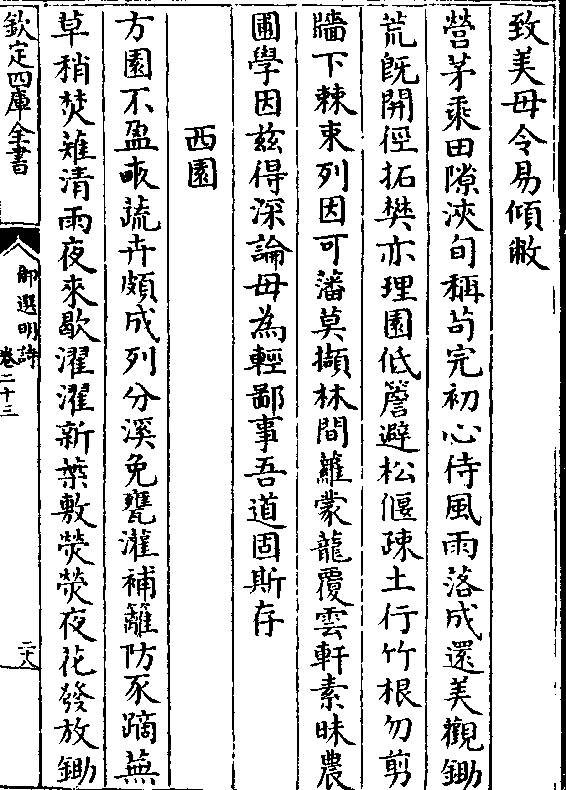 致美毋令易傾敝
營茅乘田隙浹旬稱茍完初心侍風雨落成還美觀鋤
荒既開徑拓樊亦理園低簷避松偃疎土行竹根勿剪
牆下棘束列因可藩莫擷林間蘿蒙籠覆雲軒素昧農
圃學因兹得深論毋為輕鄙事吾道固斯存
西園
方園不盈畝蔬卉頗成列分溪免甕灌補籬防豕蹢蕪
草稍焚薙清雨夜來歇濯濯新葉敷熒熒夜花發放鋤
欽定四庫全書
御選明詩
卷二十三
二十八